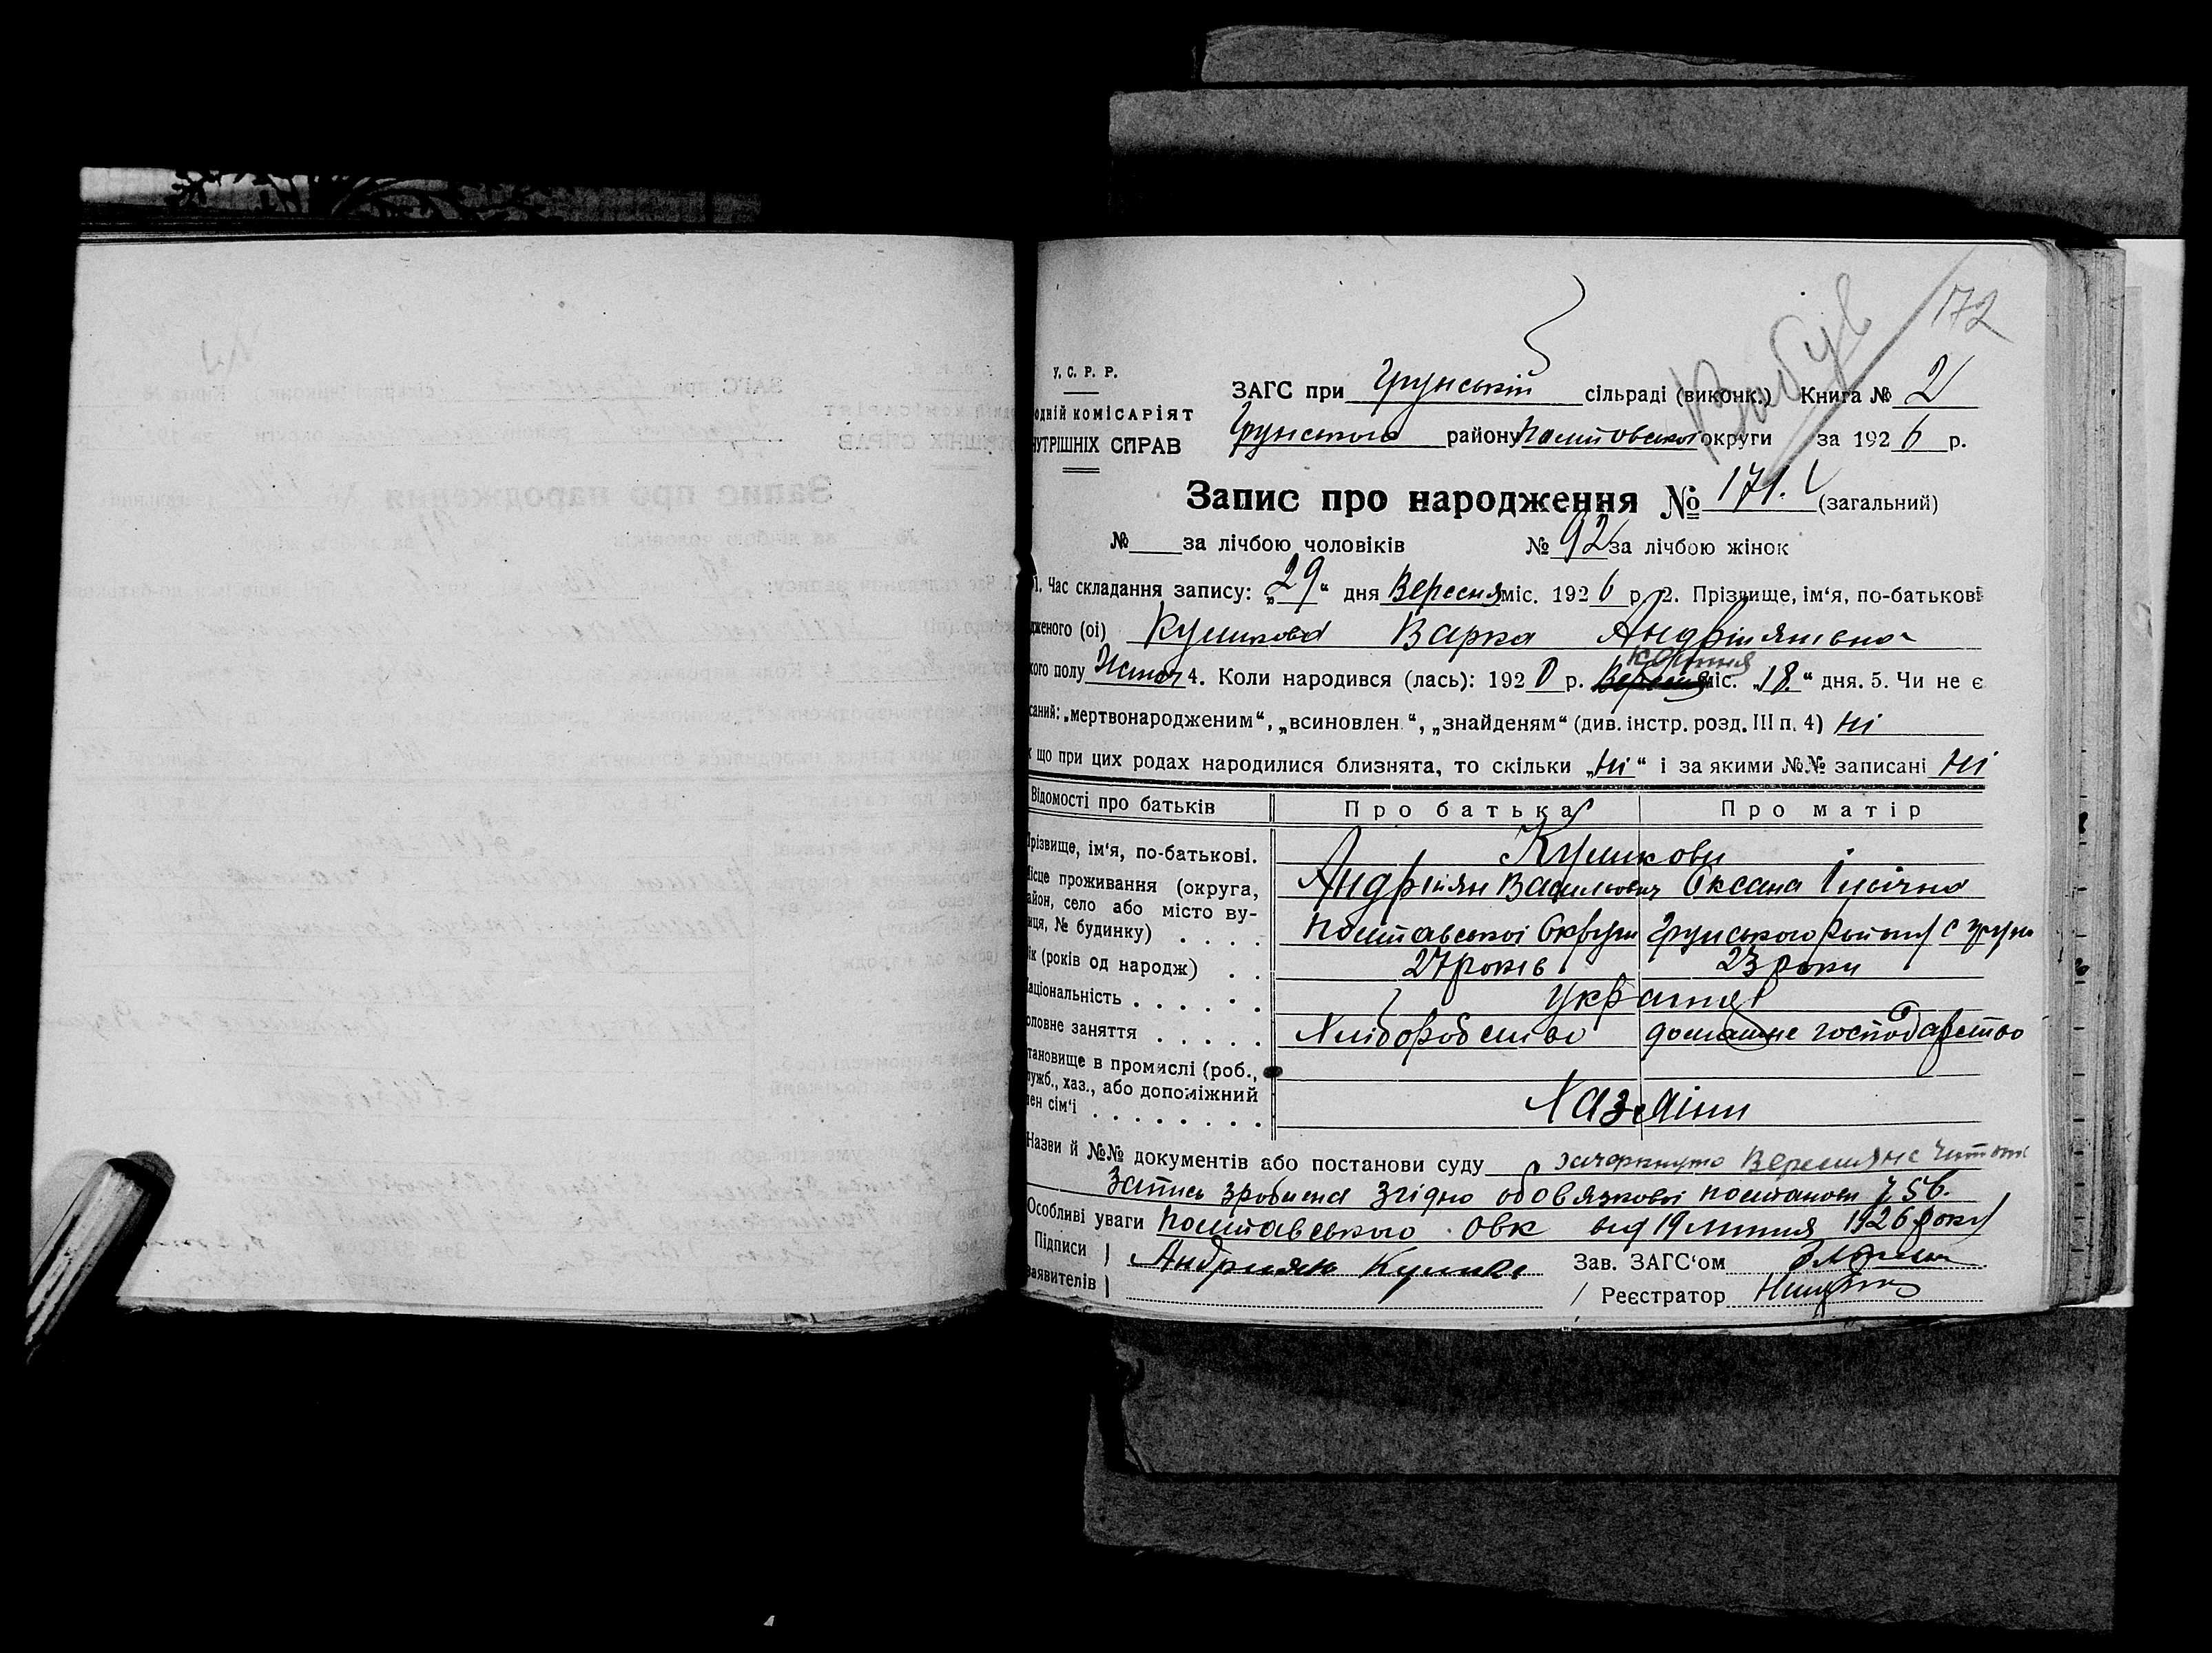 172
Вибув
У. С. Р. Р.
ЗАГС при Грунській сільраді (виконк.) Книга № 2
одній комісаріят
нутрішніх справ
Грунського району Полтовської округи за 1926 р.
Запис про народження № 171. (загальний)
№ за лічбою чоловіків № 92 за лічбою жінок
1. Час складання запису: „29“ дня Вересня міс. 1926 р. 2. Прізвище, ім‘я, по-батькові
дженого (оі) Варка Андріянівна
кого полу Жіноч 4. Коли народився (лась): 1920 р. Вересня міс. „18.“ дня. 5. Чи не є
саний: „мертвонародженим“, „всиновлен “, „знайденям“ (див. інстр. розд. III п. 4) Ні
к що при цих родах народилися близнята, то скільки „Ні“ і за якими №№ записані Ні
Відомості про батьків Про батька Про матір
Прізвище, ім‘я, по-батькові.
Андріян Васильович Оксана
Місце проживання (округа,
айон, село або місто ву-
иця, № будинку) . . . . Полтавської Округи Грунського району с
ік (років од народж) . . 27 років 23 роки
аціональність . . . . . .
оловне заняття . . . . . Хліборобство домашнє господарство
тановище в промислі (роб.,
ужб., хаз., або допоміжний
лен сім‘ї . . . . . . . . Хазяїни
Назви й №№ документів або постанови суду зачеркнуто Вересня не читать
Запись зроблена згідно обовязкової постанови 756.
Особливі уваги Полтавського ОВК від 19 липня 1926 року
Підписи Андриян Зав. ЗАГС‘ом
заявителів Реєстратор